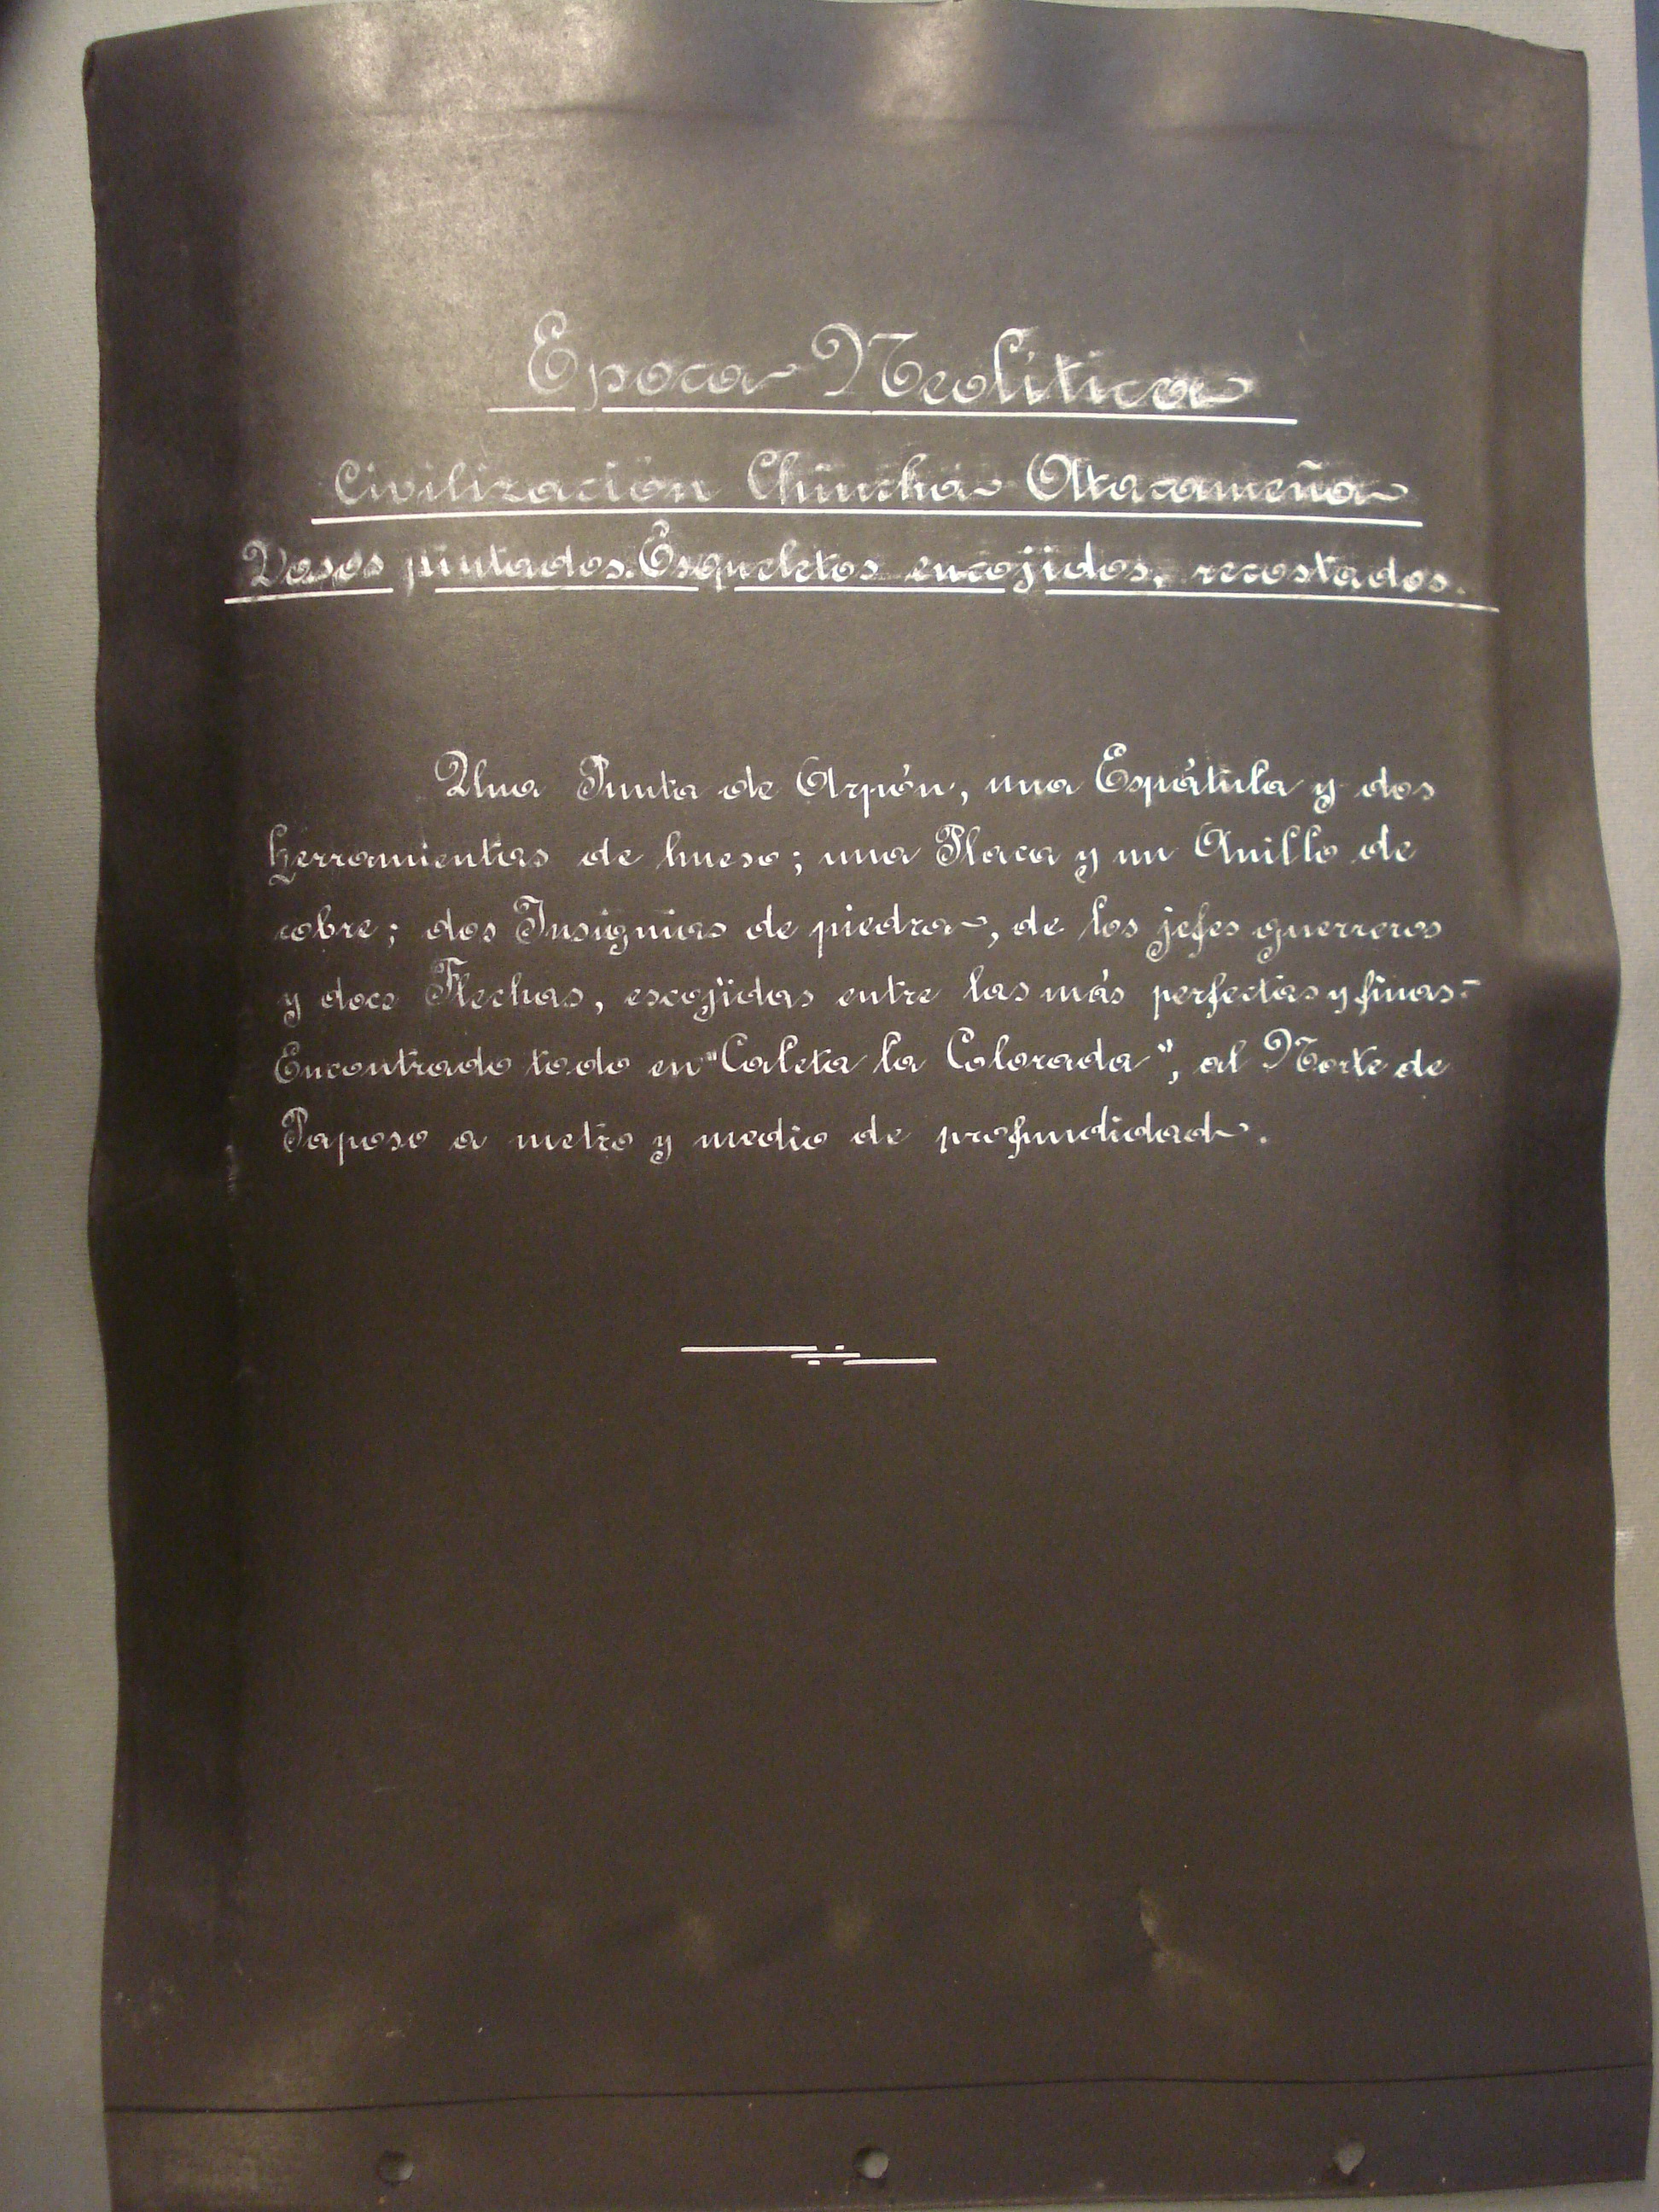 Epoca Neolítica
Civilización Chincha Atacameña
Vasos pintados. Esqueletos encojidos, recostados.
Una Punta de Arpón, una Espátula y dos
herramientas de hueso; una Placa y un Anillo de
cobre; dos Insignias de piedra, de los jefes guerreros
y doce Flechas, escojidas entre las más perfectas y finas.-
Encontrado todo en "Caleta la Colorada", al Norte de
Paposo a metro y medio de profundidad.